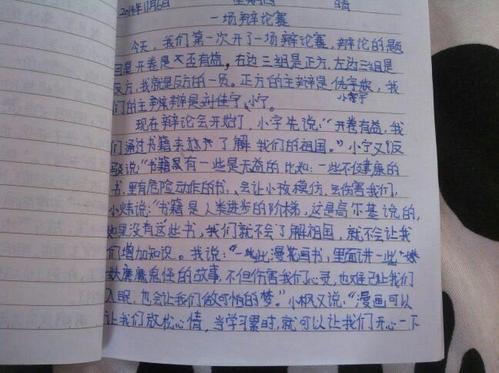 2014年11月6日 星期四 晴
一场辩论赛
今天,我们第一次开了一场辩论赛,辩论的题
目是开卷是不否有益,右边三组是正方,左边三组是
反方,我就是反方的一员。正方的主辩是,我
小宇
们的主辩是刘佳宁,小宁。
现在辩论会开始了,小宇先说:“开卷有益,我
们通过书籍来了解我们的祖国。”小宁又反
驳说:“书籍是有一些是无益的比如:一些不健康的
书,里有危险动作的书,会让小孩模仿,会伤害我们,
小说:“书籍是人类进步的阶梯,这是高尔基说的,
如果没有这些书,我们就不会了解祖国,就不会让我
们增加知识。我说:“一些漫画书,里面讲一些
妖魔鬼怪的故事,不但伤害我们心灵,也难已让我们
入眠,也会让我们做可怕的梦。”小枫又说:“漫画可以
让我们放松心情,当学习累时,就可以让我们开心一下